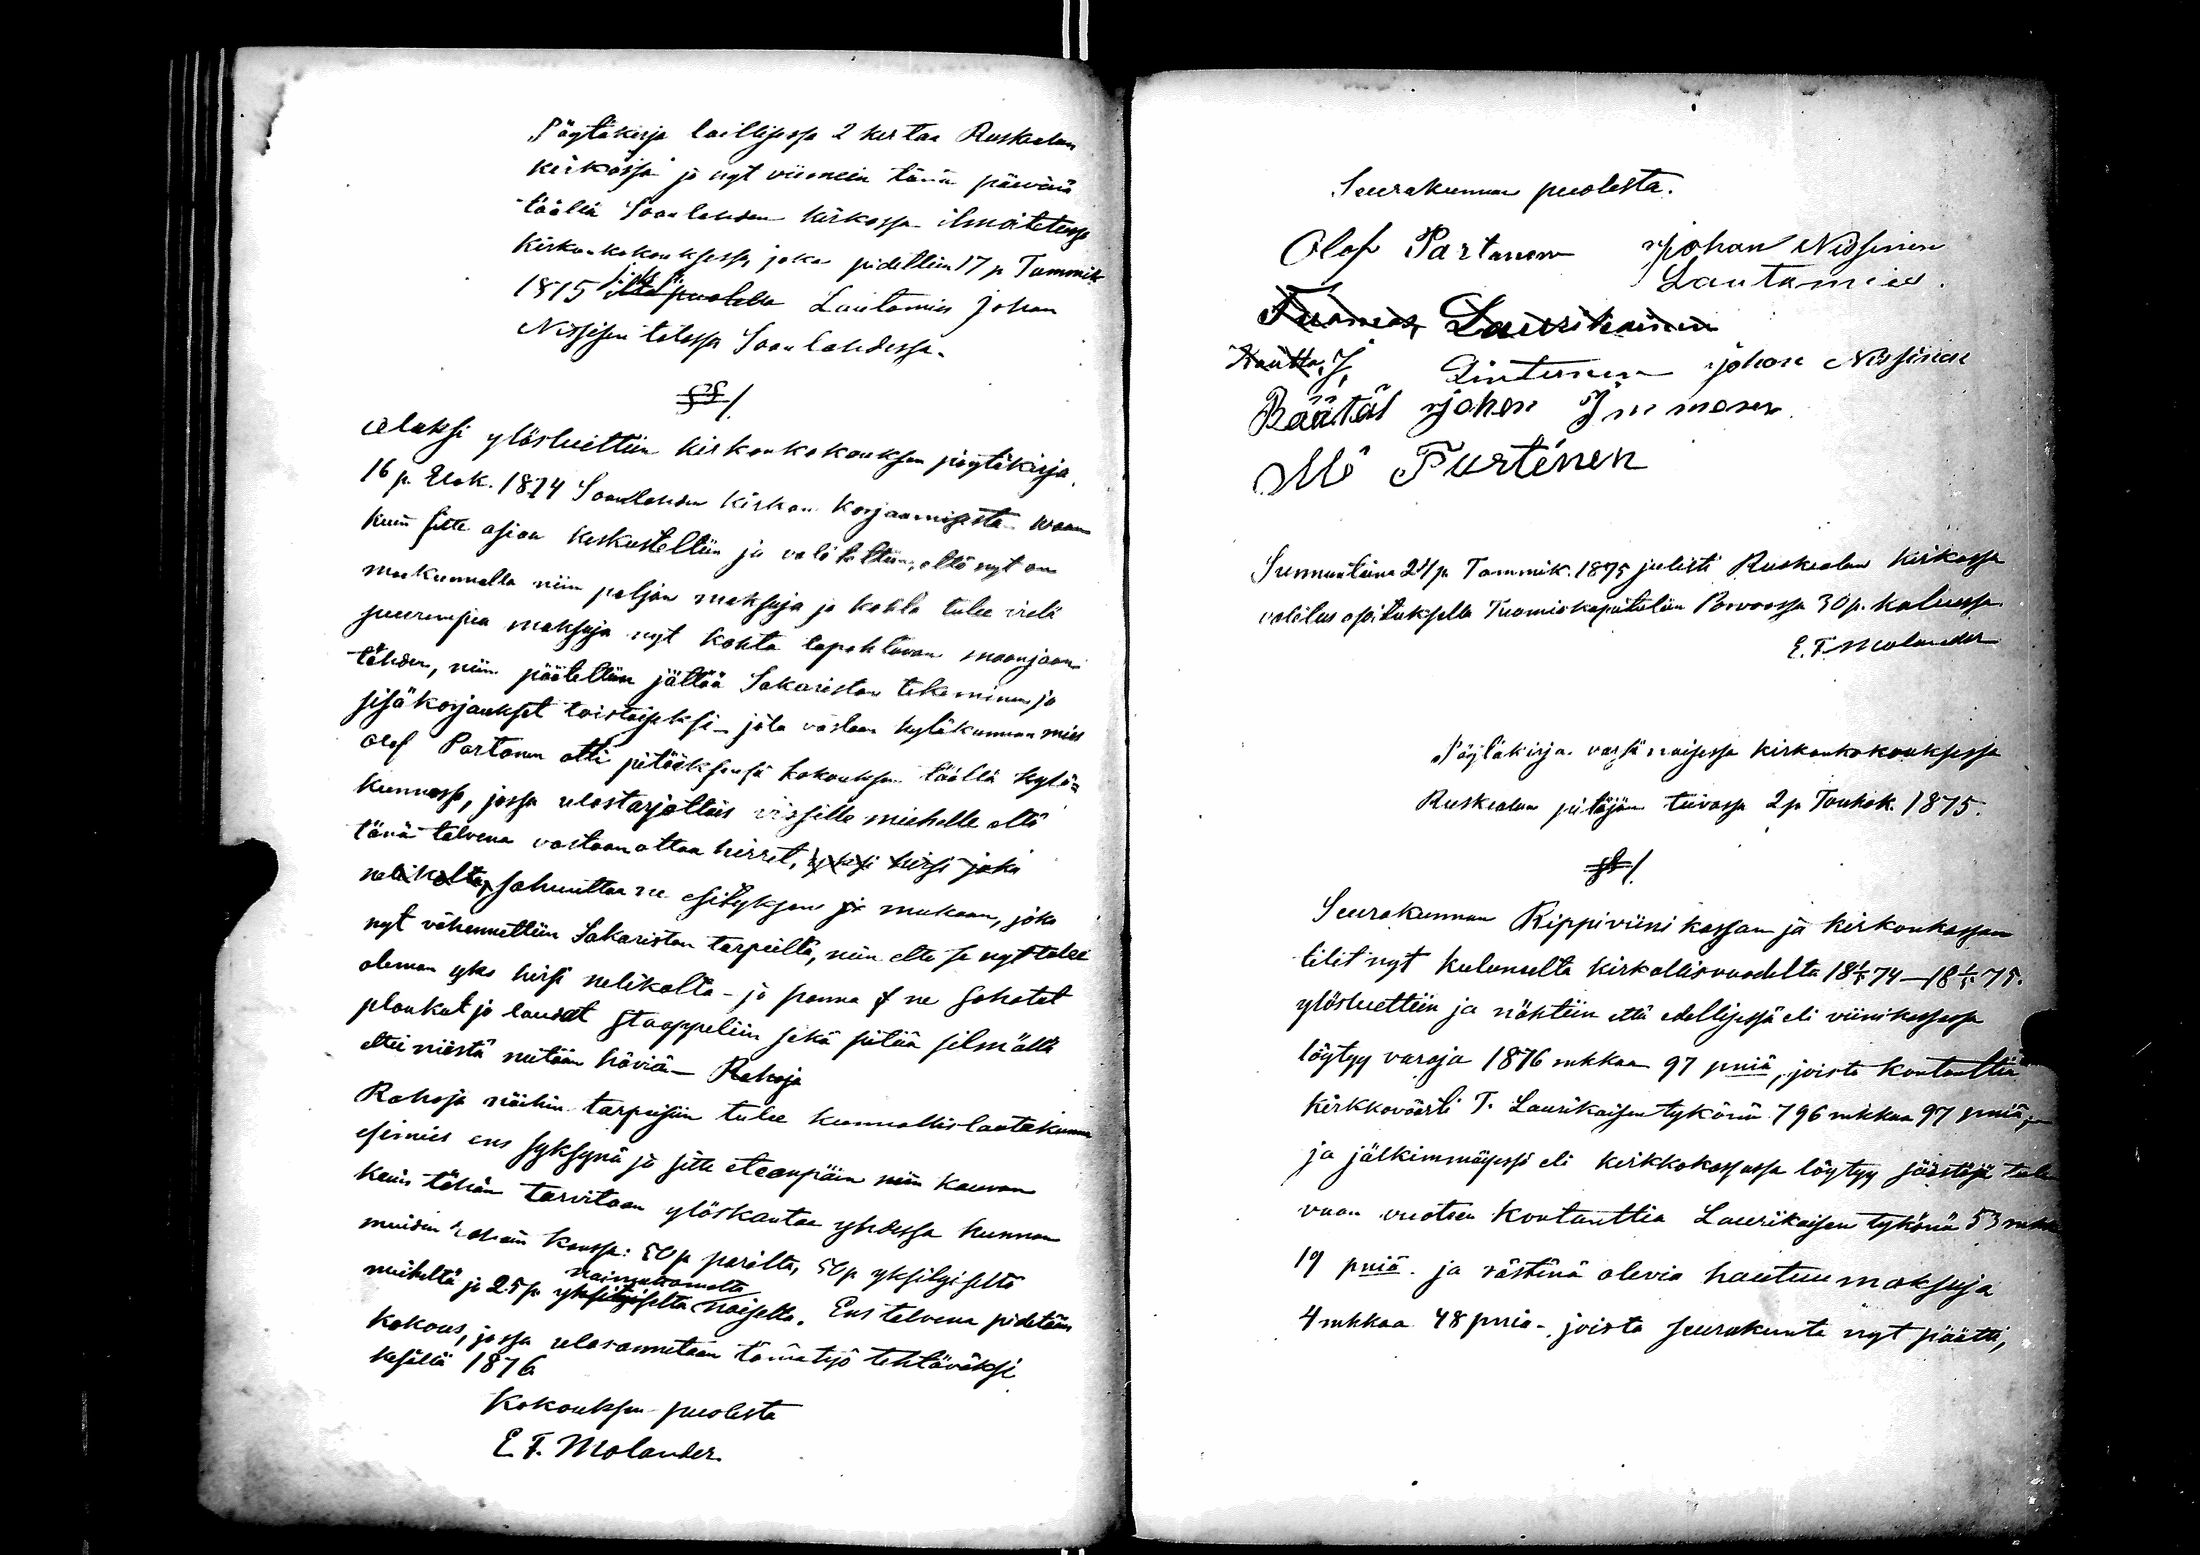 Pöytäkirja laillisessa 2 kertaa Ruskealan
kirkossa ja nyt viimein tänä päivänä
täällä Soanlahden kirkossa ilmoitetussa
Kirkonkokouksessa, joka pidettiin 17 p Tammik
1875 iltapuolella Lautamies Johan
Nissisen talossa Soanlahdessa.
§ 1.
Aluksi ylösluettiin kirkonkokouksen pöytäkirja
16 p. Elok. 1874 Soanlahden kirkon korjaamisesta waan
kuin sitte asiaa keskusteltiin ja valiteltiin, että nyt on
maakunnalla niin paljon maksuja ja kohta tulee vielä
suurempia maksuja nyt kohta tapahtuvan maanjaon
tähden, niin päätettiin jättää Sakariston tekeminen ja
sisäkorjaukset toistaiseksi – jota vastaan kyläkunnan mies
Olof Partanen otti pitääksensä kokouksen täällä kylä=
kunnassa, jossa ulostarjottais vissille miehelle että
tänä talvena vastaanottaa hirret, yksi hirsi joka
nelikolta, sahauttaa ne esityksen ja mukaan, joka
nyt vähennettiin Sakariston tarpeilta, niin että se nyt tulee
oleman yks hirsi nelikolta – ja panna ne sahatut
plankut ja laudat staappeliin sekä pitää silmällä
ettei niistä mitään häviä – Rahoja
Rahoja näihin tarpeisiin tulee kunnallislautakunnan
esimies ens syksynä ja sitte eteenpäin niin kauvan
kuin tähän tarvitaan ylöskantaa yhdessä kunnan
muiden rahain kanssa: 50 p parilta, 50 p yksityiseltä
naimattomalta
mieheltä ja 25 p yksityiseltä naiselta. Ens talvena pidetään
kokous, jossa ulosannetaan tämä työ tehtäväksi
kesällä 1876
Kokouksen puolesta
E. F. Molander.
Seurakunnan puolesta.
Olof Partanen Johan Nissinen
Lautamies.
Tuomas Laurikainen
J. Pintunen Johan Nissinen
Räätäl Johan Immonen
M Turtinen
Sunnuntaina 24 p. Tammik. 1875 julisti Ruskealan kirkossa
valitus osoituksella Tuomiokapiteliin Porvoossa 30 p. kuluessa
E. F. Molander
Pöytäkirja varsinaisessa kirkonkokouksessa
Ruskealan pitäjän tuvassa 2 p Toukok. 1875.
§ 1.
Seurakunnan Rippiviini kassan ja kirkonkassan
tilit nyt kuluneelta kirkollisvuodelta 18 1/5 74 – 18 1/5 75.
ylösluettiin ja nähtiin että edellisessä eli viinikassassa
löytyy varoja 1876 mkkaa 97 pniä, joista kontanttia
kirkkoväärti T. Laurikaisen tykönä 796 mkkaa 97 pniä,
ja jälkimmäisessä eli kirkkokassassa löytyy säästöjä tule
vaan vuoteen kontanttia Laurikaisen tykönä 53 mkk
19 pniä. ja rästinä olevia hautuumaksuja
4 mkkaa 48 pniä – joista seurakunta nyt päätti,